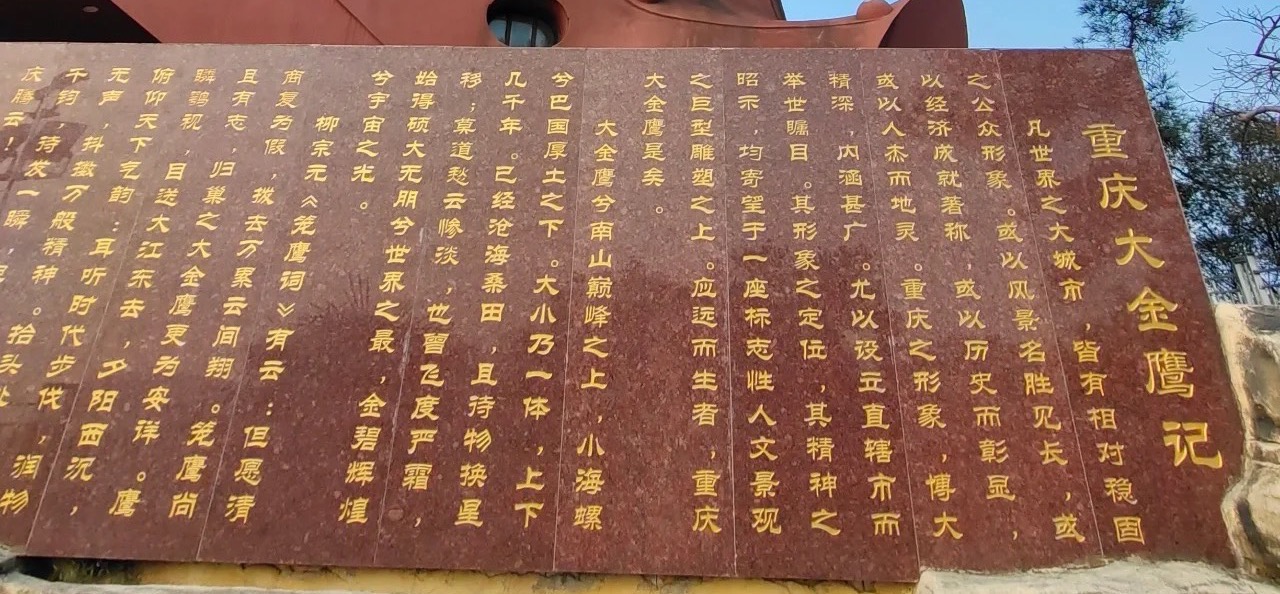 重庆大金鹰记
凡世界之大城市，皆有相对稳固
之公众形象。或以风景名胜见长，或
以经济成就著称，或以历史而彰显，
或以人杰而地灵。重庆之形象，博大
精深，内涵甚广。尤以设立直辖市而
举世瞩目。其形象之定位，其精神之
昭示，均寄望于一座标志性人文景观
之巨型雕塑之上。应远而生者，重庆
大金鹰是矣。
大金鹰兮南山颠峰之上，小海螺
兮巴国厚土之下。大小乃一体，上下
几千年。已经沧海桑田，且待物换星
移；莫道愁云惨淡，也曾飞度严霜，
始得硕大无朋兮世界之最，金碧辉煌
兮宇宙之光。
柳宗元《笼鹰词》有云：但愿清
商复为假，拨去万累云间翔。笼鹰尚
且有志，归巢之大金鹰更为安详。鹰
瞵鹗视，目送大江东去，夕阳西沉，
俯仰天下气韵：耳听时代步伐，润物
无声，抖擞万般精神。抬头处
千钧，待发一瞬，
庆腾云！